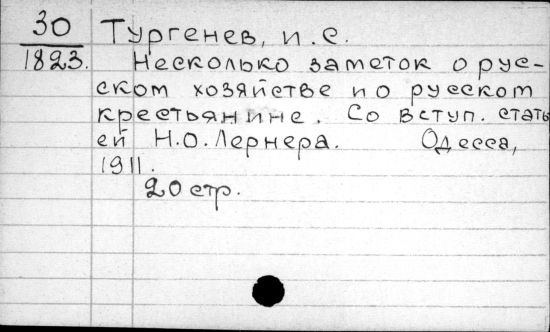 30
1823.
Тургенев, И.С.
Несколько заметок о рус-
ском хозяйстве и о русском
крестьянине. Со вступ. стать
ей Н.О. Лернера. Одесса,
1911.
20 стр.